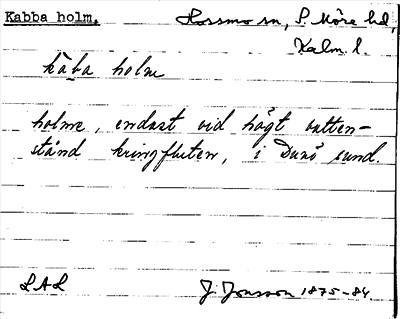 Kabba holm. Hossmo sn, S. Möre hd,
Kalm. l.
kàba holm
holme, endast vid högt vatten-
stånd kringfluten, i Dunö sund.
LAL J. Jonsson 1875-84.